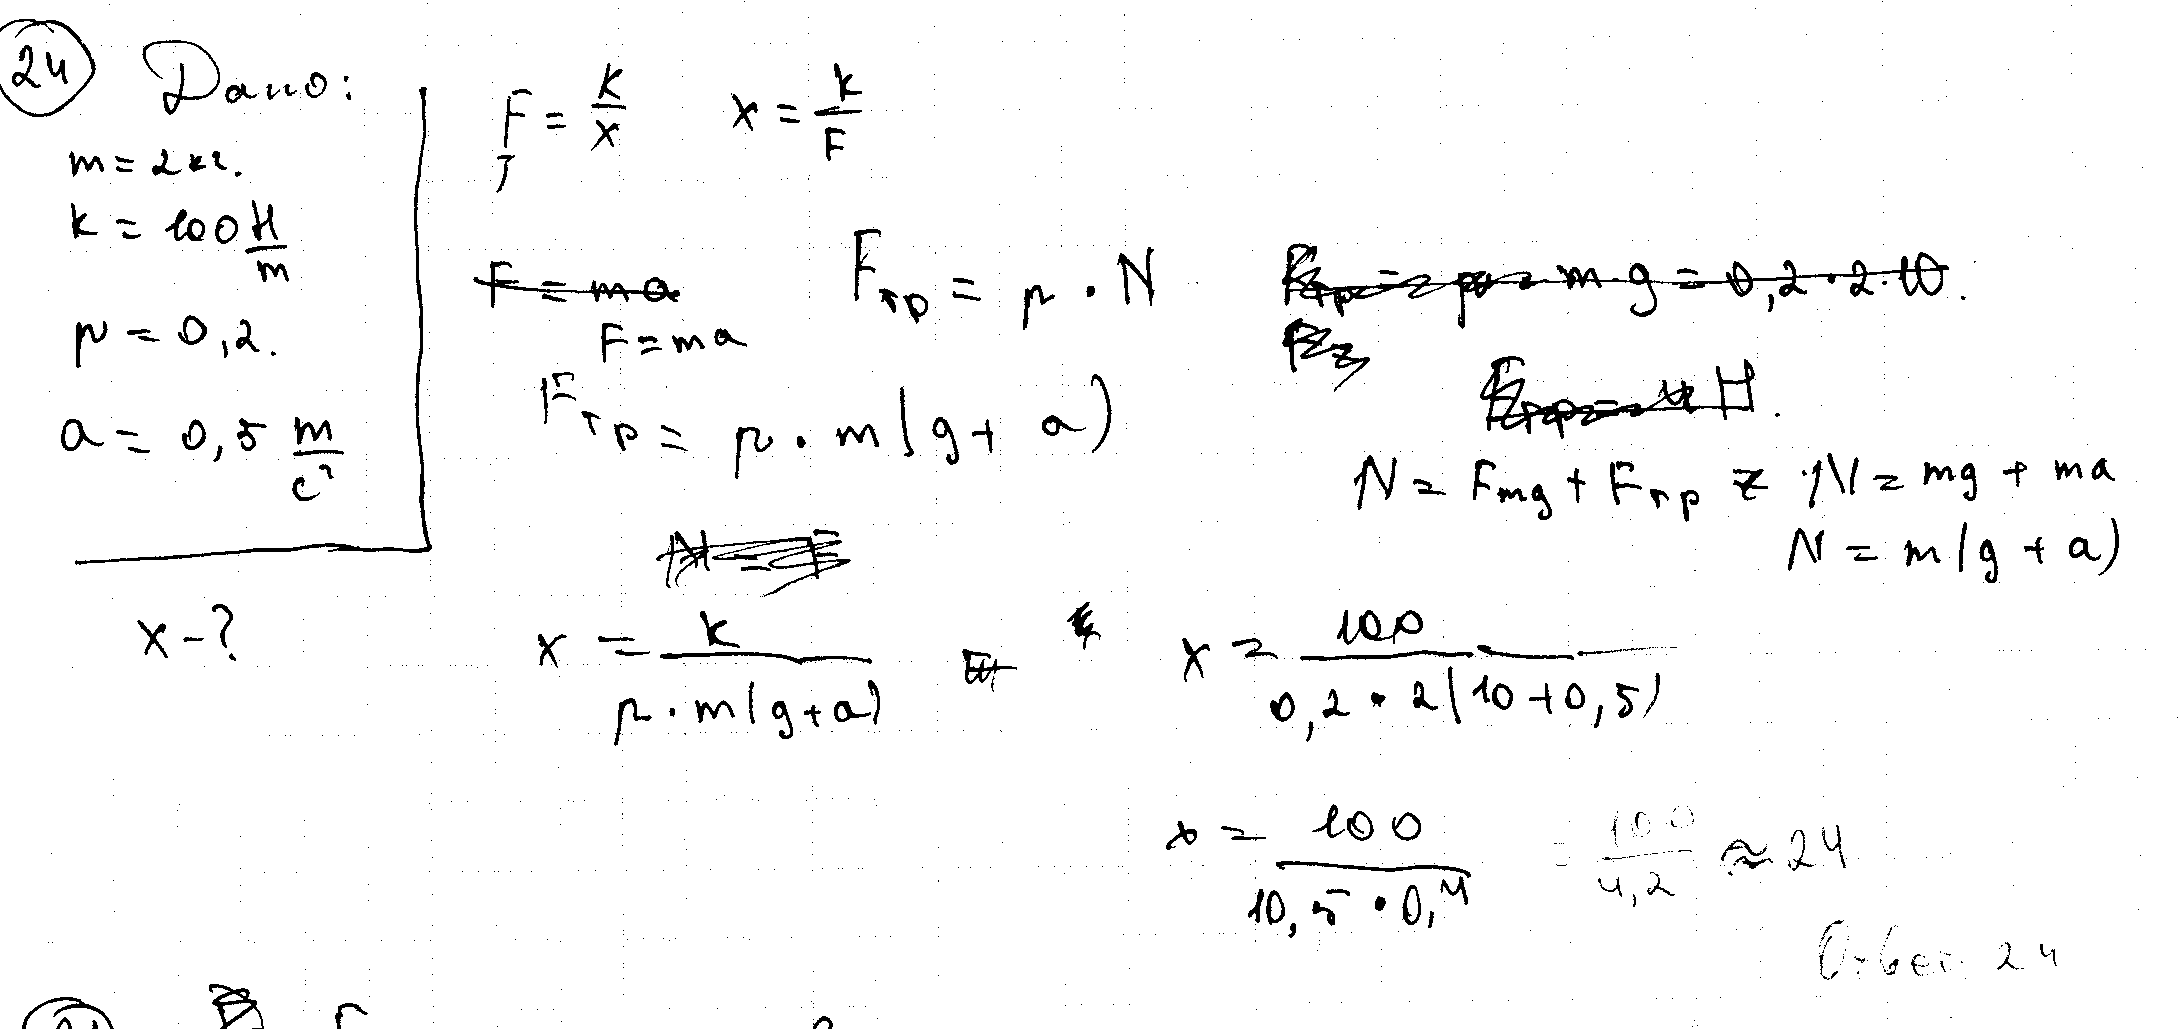 24 Дано:
m = 2 кг.
k = 100 Н/m
μ = 0,2.
a = 0,5 m/c²
x - ?
F = k/x x = k/F
F = ma
F = ma
Fтр = μ · N
m g = 0,2 · 2 · 10.
Fтр = μ · m (g + a)
N = Fmg + Fтр N = mg + ma
N = m (g + a)
x = k / μ · m (g + a)
x = 100 / 0,2 · 2 (10 + 0,5)
x = 100 / 10,5 · 0,4 = 100 / 4,2 ≈ 24
Ответ 24